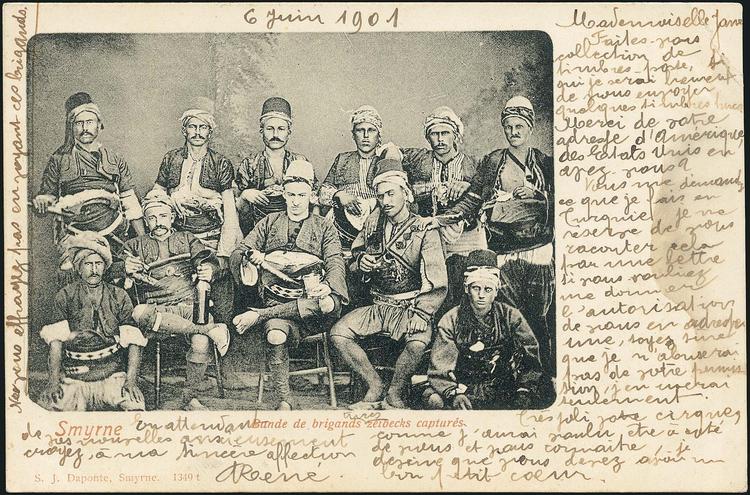 6 Juin 1901
Mademoiselle Jane
Faites vous
collection de
timbres-poste, si
oui je serai heureux
de vous envoyer
quelques timbres turcs
Merci de votre
adresse d'Amérique,
des Etats Unis en
avez vous?
Vous me demandez
ce que je fais en
Turquie. Je me
réserve de vous
raconter cela
par une lettre
si vous vouliez
me donner
l'autorisation
de vous en adresser
une, soyez sûre
que je n'abuserai
pas de votre permis-
sion, j'en userai
seulement.
Ne vous effrayez pas en voyant ces brigands.
Smyrne
Bande de brigands zeibecks capturés.
En attendant
de vos nouvelles anxieusement
croyez, à ma sincère affection
René.
Très joli
comme j'aurai voulu être à côté
de vous et vous connaître
que vous devez avoir un
bon petit coeur.
S. J. Daponte, Smyrne. 1349 t